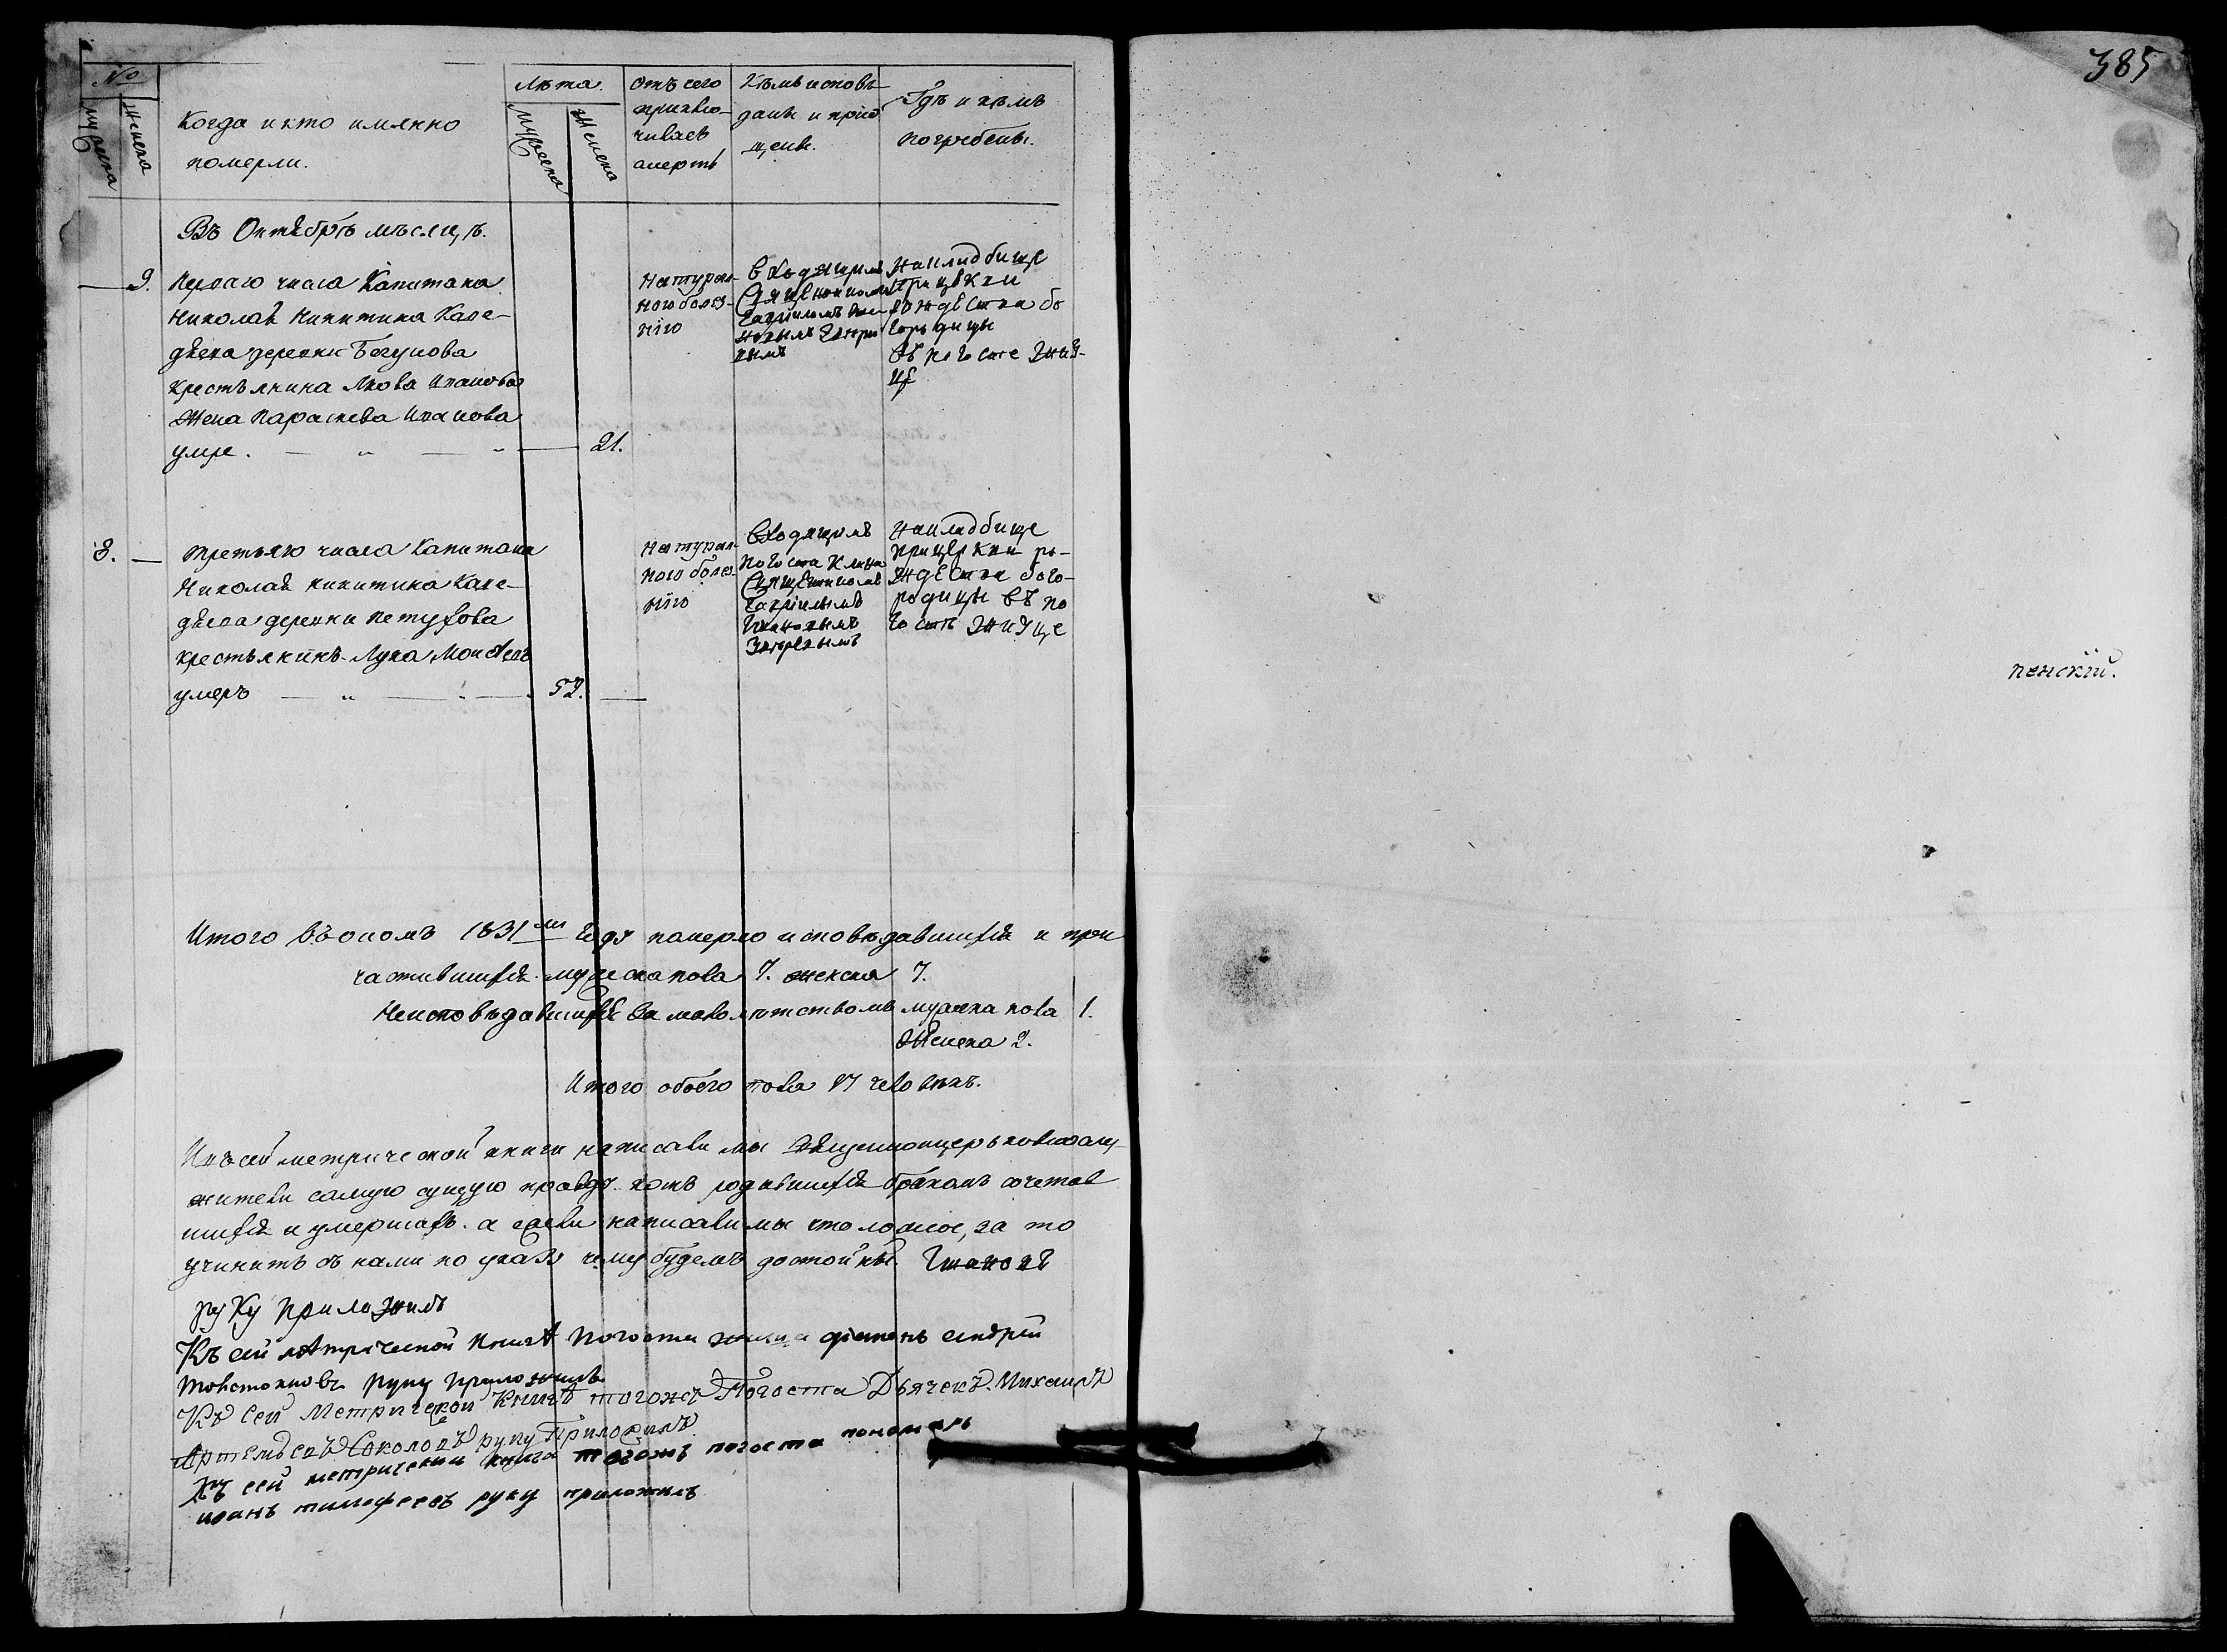 №
мужеска
женска
Когда и кто имянно
померли.
Лѣта.
мужеска
женска
отъ чего
приключилась
смерть
Кѣмъ исповѣ-
даны и приоб
щены.
Гдѣ и кѣмъ
погребены.
Въ Октябрѣ мѣсяцѣ.
9.
перваго числа Капитана
Николая Никитина
деревни Бегунова
крестьянина Якова Иванова
Жена Параскева Иванова
умре.
21.
Натурал-
ною болез-
нію
Священникомъ
на кладбище
при церкви
рождества бо
городицы
въ погосте
8.
третьяго числа Капитана
Николая Никитина
деревни Петухова
крестьянинъ Лука Моисѣевъ
умеръ
Натурал-
ною болез-
нію
погоста
Священникомъ
на кладбище
при церкви ро-
ждества бого-
родицы въ по
гостѣ
Итого въ ономъ 1831мъ году померло исповѣдавшихся и при
частившихся мужеска пола 7. женска 7.
Неисповѣдавшихся за малолѣтствомъ мужска пола 1.
Женска 2.
Итого обоего пола 17 человѣкъ.
сей метрической книги написали мы священноцерьковнослу-
жители самую сущую правду родившихся бракомъ сочетав
шихся и умершихъ. а если написали мы что ложное, за то
учинить съ нами по указу чему будемъ достойны.
руку приложилъ
Къ сей метрической книгѣ погоста андрей
руку приложилъ
Къ сей Метрической Книгѣ тогожъ Погоста Дьячекъ Михаилъ
Артемьевъ Соколовъ руку Приложилъ.
Къ сей метрической книге тогожъ погоста пономарь
иванъ тимофеевъ руку приложилъ
385
пенскій.